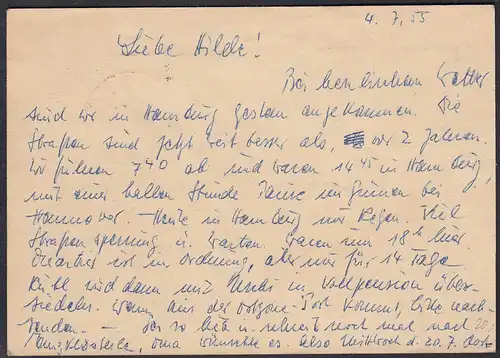 4. 7. 55
Liebe Hilde!
Bei herrlichem Wetter
sind wir in Hamburg gestern angekommen. Die
Straßen sind jetzt weit besser als vor 2 Jahren.
Wir fuhren 7 40 ab und waren 14 45 in Hamburg,
mit einer halben Stunde Pause im Grünen bei
Hannover. – Heute in Hamburg nur Regen. Viel
Straßensperrung u. Warten. Waren um 18 h hier.
Quartier ist in Ordnung, aber nur für 14 Tage
und dann mit in Vollpension über-
siedeln. Wenn aus der Ostzone Post kommt, bitte nach-
senden. – so bitte u. schreibt noch mal nach
Oma wünschte es. Also Mittwoch d. 20. 7. dort